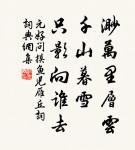 渺萬里層雲
千山暮雪
只影向誰去
元好問摸魚兒雁丘詞
詞典網集